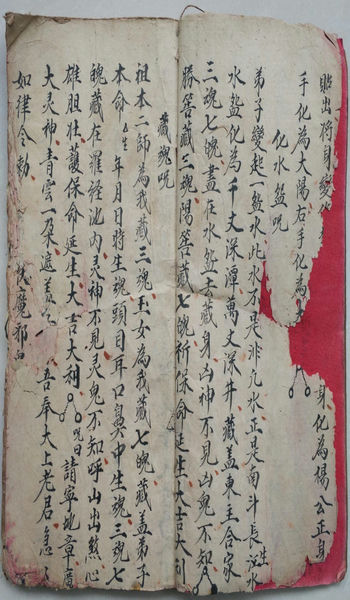 貼出将身變
手化為大陽右手化為 身化為楊公正身
化水盆咒
弟子變起一盆水此水不是非凡水正是南斗長生水
水盆化為千丈深潭萬丈深井藏盖東主合家
三魂七魄盡在水盆去藏身凶神不見凶鬼不知
勝筶藏三魂陽筶藏七魄祈保命延生大吉大利
藏魂咒
祖本二師為我藏三魂玉女為我藏七魄藏盖弟子
本命 生年月日時生魂頭目耳口鼻中生魂三魂七
魄藏在羅経池内灵神不見灵鬼不知呼山出煞心
雄胆壮護保命延生大吉大利 咒曰請寧地章
大灵神青雲一朶遮盖 吾奉太上老君急
如律令勅 魔邪